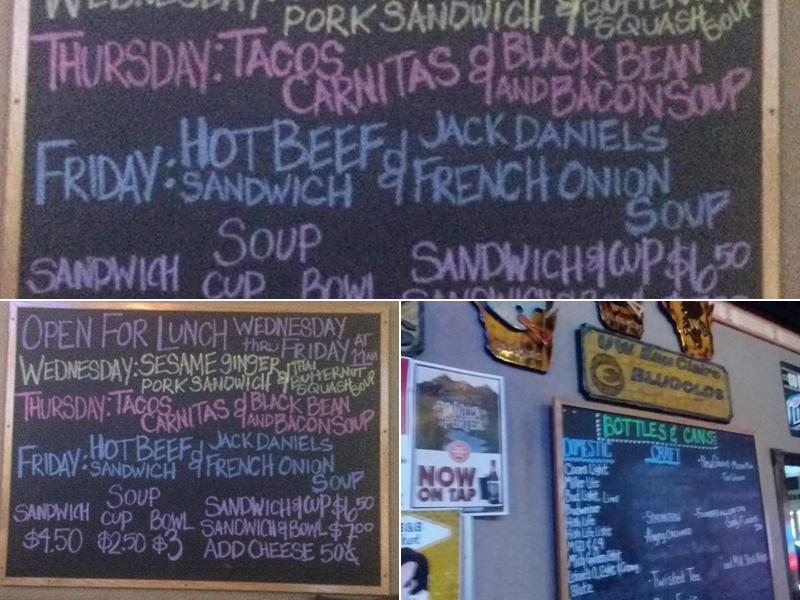 WEDNESDAY:
PORK SANDWICH & BUTTERNUT
SQUASH SOUP
THURSDAY: TACOS
CARNITAS & BLACK BEAN
AND BACON SOUP
FRIDAY: HOT BEEF
SANDWICH & JACK DANIELS
FRENCH ONION
SOUP
SOUP
SANDWICH CUP BOWL
SANDWICH & CUP $6.50
OPEN FOR LUNCH WEDNESDAY
thru FRIDAY AT
11AM
WEDNESDAY: SESAME GINGER
PORK SANDWICH & THAI
BUTTERNUT
SQUASH SOUP
THURSDAY: TACOS
CARNITAS & BLACK BEAN
AND BACON SOUP
FRIDAY: HOT BEEF
SANDWICH & JACK DANIELS
FRENCH ONION
SOUP
SOUP
SANDWICH CUP BOWL
$4.50 $2.50 $3
SANDWICH & CUP $6.50
SANDWICH & BOWL $7.00
ADD CHEESE 50¢
UW Eau Claire
BLUGOLDS
VANILLA
PORTER
NOW
ON TAP
BOTTLES & CANS
DOMESTIC CRAFT
Coors Light
Miller Lite
Bud Light Lime
Budweiser
High Life
High Life Light
MGD 64
Blatz
- Angry Orchard
- Twisted Tea